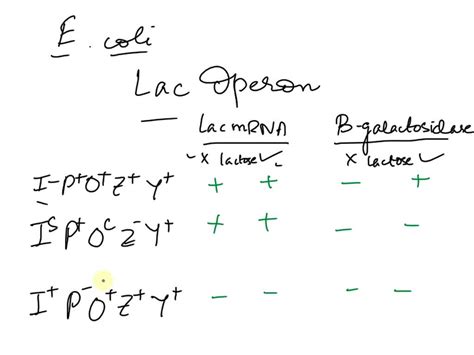 E. coli
Lac Operon
Lac mRNA B-galactosidase
✓ X lactose ✓ X lactose ✓
I⁻P⁺O⁺Z⁺Y⁺ + + − +
IˢP⁺OᶜZ⁻Y⁺ + + − −
I⁺P⁻O⁺Z⁺Y⁺ − − − −